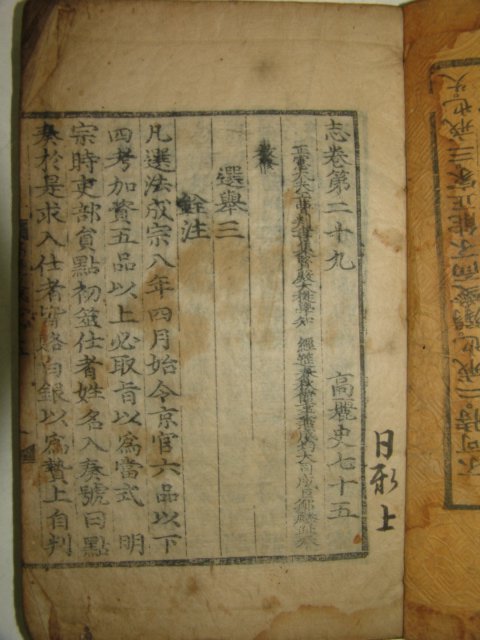 日形上
志卷第二十九 高麗史七十五
正憲大夫工曹判書集賢殿大提學知 經筵春秋館事兼成均大司成臣鄭麟趾奉
選舉三
銓注
凡選法成宗八年四月始令京官六品以下
四考加資五品以上必取旨以爲當式 明
宗時吏部員點初筮仕者姓名入奏號曰點
奏於是求入仕者皆賂白銀以爲贄上自判